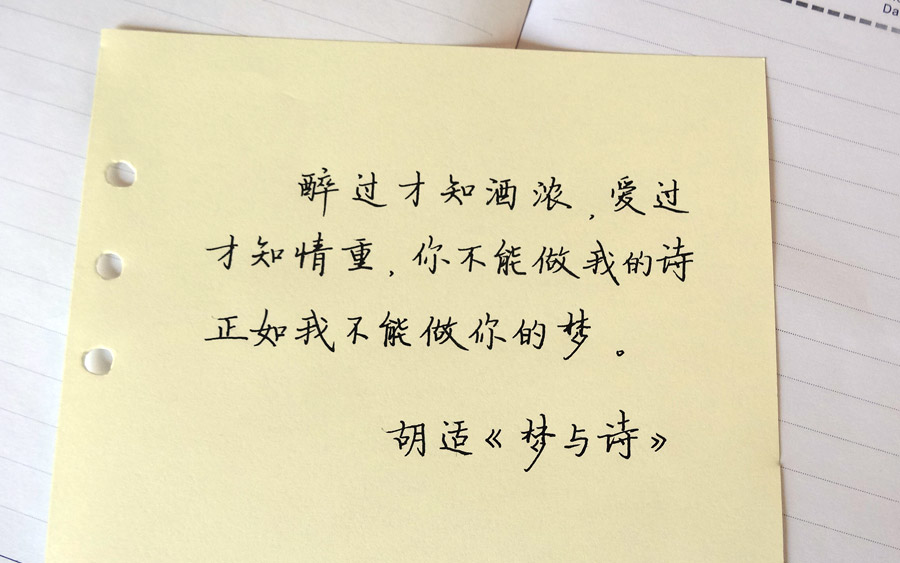 Da
醉过才知酒浓,爱过
才知情重,你不能做我的诗
正如我不能做你的梦。
胡适《梦与诗》